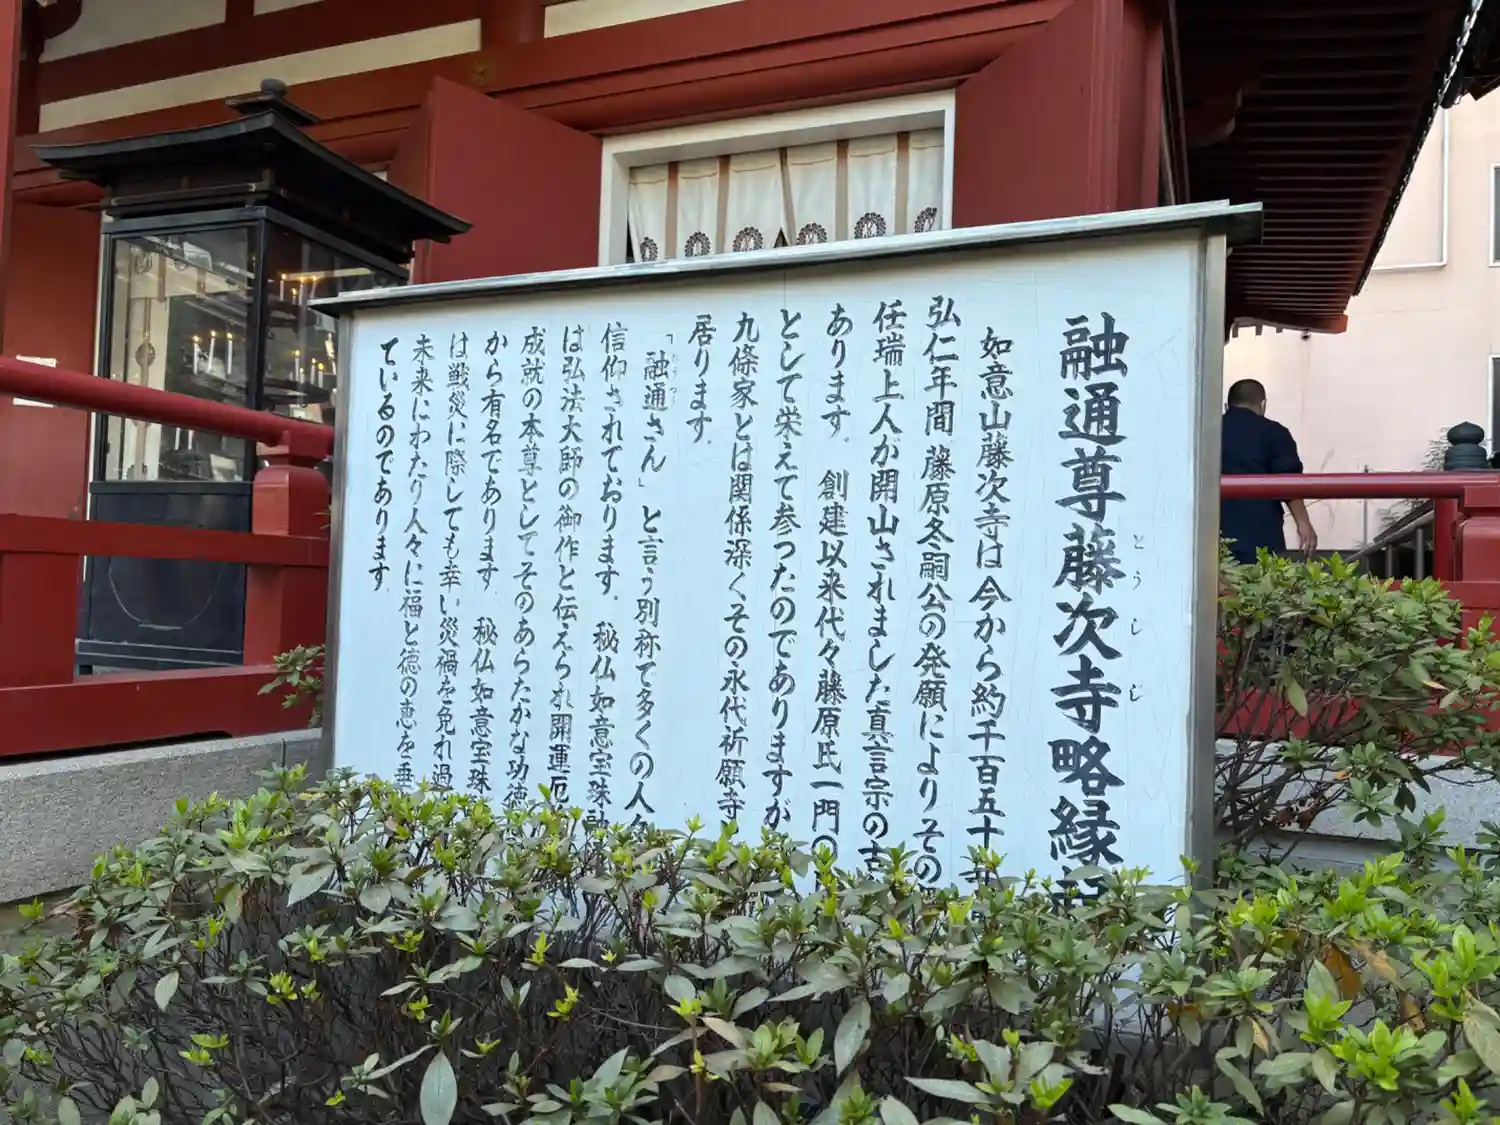 融通尊藤次寺略縁
とうじじ
如意山藤次寺は今から約千百五十
弘仁年間藤原冬嗣公の発願によりその
任瑞上人が開山されました真言宗の古
あります。創建以来代々藤原氏一門の
として栄えて参ったのでありますが
九條家とは関係深くその永代祈願寺
居ります。
「融通さん」と言う別称で多くの人々
信仰されております。秘仏如意宝珠融
は弘法大師の御作と伝えられ開運厄
成就の本尊としてそのあらたかな功徳
から有名であります。秘仏如意宝珠
は戦災に際しても幸い災禍を免れ過
未来にわたり人々に福と徳の恵を垂
ているのであります。